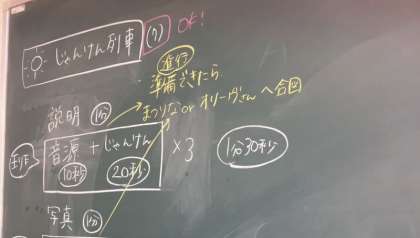 じゃんけん列車 (7) OK!
進行
準備できたら
まつりな or オリーブさんへ合図
説明 1分
音源 + じゃんけん ×3 1分30秒
10秒 20秒
写真 1分